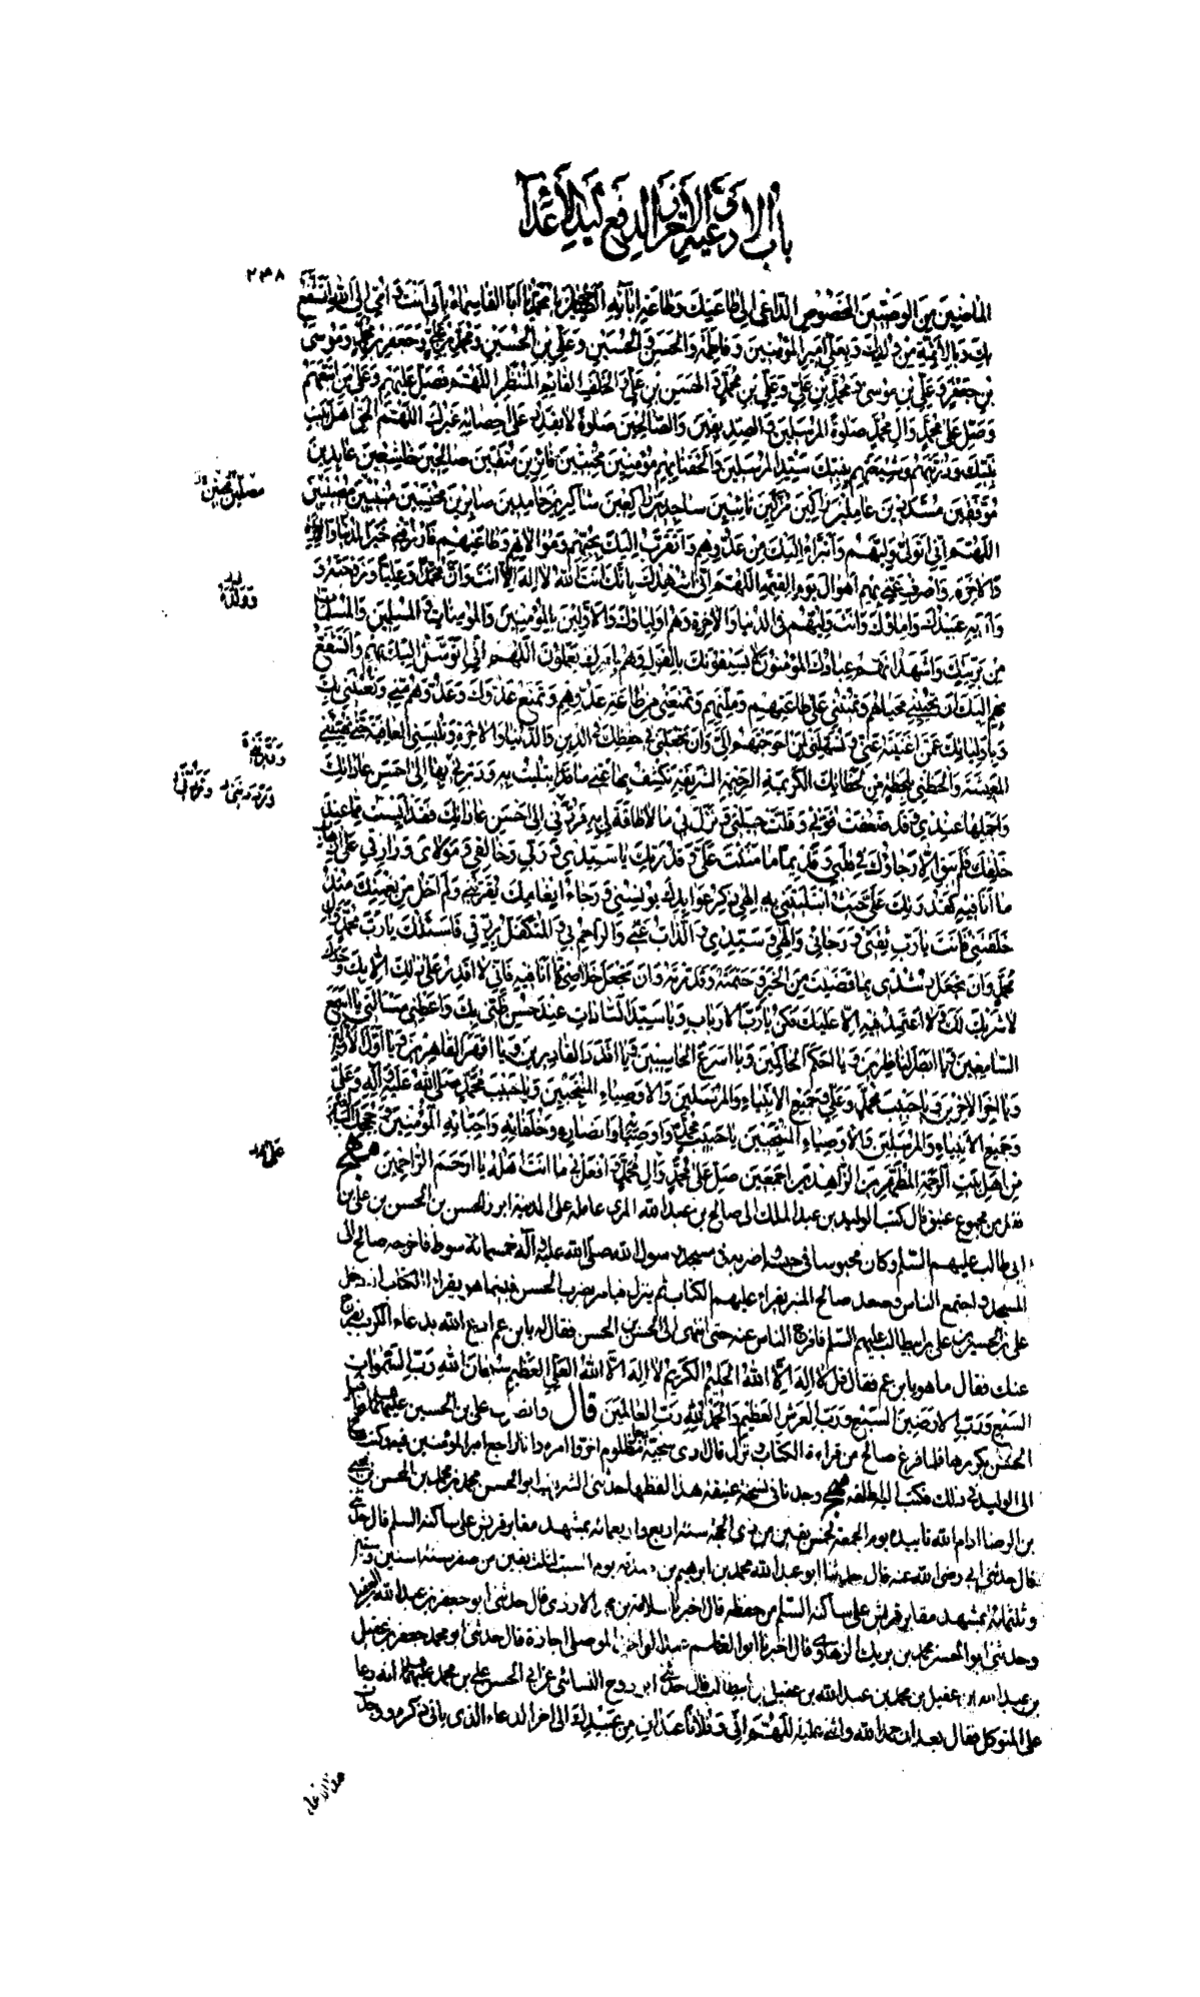 باب الادعية والاحراز لدفع كيد الاعداء
٢٣٨
الماضين من الوصيين المخصوص الداعي الى طاعتك وطاعة ابائه الطاهرين يا محمد يا ابا القاسماه بابي انت وامي الى الله اتشفع
بك وبالائمة من ولدك وبعلي امير المؤمنين وفاطمة والحسن والحسين وعلي بن الحسين ومحمد بن علي وجعفر بن محمد وموسى
بن جعفر وعلي بن موسى ومحمد بن علي وعلي بن محمد والحسن بن علي والخلف القائم المنتظر اللهم فصل عليهم وعلى من اتبعهم
وصل على محمد وال محمد صلوة المرسلين والصديقين والصالحين صلوة لا يقدر على احصائها غيرك اللهم الحق اهل بيت
نبيك وذريتهم وشيعتهم بنبيك سيد المرسلين والحقنا بهم مؤمنين مخبتين فائزين متقين صالحين خاشعين عابدين
موفقين مسددين عاملين زاكين تائبين ساجدين راكعين شاكرين حامدين صابرين محتسبين منيبين مصيبين
مصلين محسنين
اللهم اني اتولى وليهم واتبرأ اليك من عدوهم واتقرب اليك بحبهم وموالاتهم وطاعتهم فارزقني خير الدنيا والاخرة
والاخرة واصرف عني بهم اهوال يوم القيمة اللهم اني اشهدك بانك انت الله لا اله الا انت وان محمدا وعليا وزوجته و
وولديه
وولده عبيدك واماؤك وانت وليهم في الدنيا والاخرة وهم اولياؤك والاولين بالمؤمنين والمؤمنات والمسلمين والمسلمات
من بريتك واشهد انهم عبادك المؤمنون لا يسبقونك بالقول وهم بامرك يعملون اللهم اني اتوسل اليك بهم واتشفع
بهم اليك ان تحييني محياهم وتميتني على طاعتهم وملتهم وتمنعني من طاعة عدوهم وتمنع عدوك وعدوهم مني وتغنيني بك
وباوليائك عمن اغنيته عني وتسهل لي من احوجتهم الي وان تجعلني في حفظك في الدين والدنيا والاخرة وتلبسني العافية حتى تهنئني
المعيشة والحظني بلحظة من لحظاتك الكريمة الرحيمة الشريفة تكشف بها عني ما قد ابتليت به ودبرني بها الى احسن عاداتك
واجملها عندي فقد ضعفت قوتي وقلت حيلتي ونزل بي ما لا طاقة لي به فردني الى احسن عاداتك فقد ايست مما عند
خلقك فلم يبق الا رجاؤك في قلبي وقديما ما مننت علي وقدرتك يا سيدي وربي وخالقي ومولاي ورازقي على اذهاب
ما انا فيه كقدرتك علي حيث ابتليتني به الهي ذكر عوائدك يونسني ورجاء انعامك يقربني ولم اخل من نعمتك منذ
خلقتني فانت يا رب ثقتي ورجائي والهي وسيدي والذاب عني والراحم بي والمتكفل برزقي فاسئلك يا رب محمد وال
محمد وان تجعل رشدي بما قضيت من الخير وحتمته وقدرته وان تجعل خلاصي مما انا فيه فاني لا اقدر على ذلك الا بك وحدك
لا شريك لك ولا اعتمد فيه الا عليك فكن يا رب الارباب ويا سيد السادات عند حسن ظني بك واعطني مسئلتي يا اسمع
السامعين ويا ابصر الناظرين ويا احكم الحاكمين ويا اسرع الحاسبين ويا اقدر القادرين ويا اقهر القاهرين ويا اول الاولين
ويا اخر الاخرين ويا حبيب محمد وعلي وجميع الانبياء والمرسلين والاوصياء المنتجبين ويا حبيب محمد صلى الله عليه وآله وعلي
وجميع الانبياء والمرسلين والاوصياء المنتجبين يا حبيب محمد واوصيائه وانصاره وخلفائه واحبائه المؤمنين وحججك البالغين
من اهل بيت الرحمة المطهرين الزاهدين اجمعين صل على محمد وال محمد وافعل بي ما انت اهله يا ارحم الراحمين مهج
نقل من مجموع عتيق قال كتب الوليد بن عبد الملك الى صالح بن عبد الله المري عامله على المدينة ابرز الحسن بن الحسن بن علي بن
ابي طالب عليهم السلم وكان محبوسا في حبسه واضربه في مسجد رسول الله صلى الله عليه وآله خمسمائة سوط فاخرجه صالح الى
المسجد واجتمع الناس وصعد صالح المنبر يقراء عليهم الكتاب ثم ينزل فيامر بضرب الحسن فبينما هو يقراء الكتاب اذ دخل
علي بن الحسين بن علي بن ابيطالب عليهم السلم فافرج الناس عنه حتى انتهى الى الحسن بن الحسن فقال له يابن عم ادع الله بدعاء الكرب يفرج
عنك فقال ما هو يابن عم فقال قل لا اله الا الله الحليم الكريم لا اله الا الله العلي العظيم سبحان الله رب السموات
السبع ورب الارضين السبع ورب العرش العظيم والحمد لله رب العالمين قال وانصرف علي بن الحسين عليهما السلم واقبل
الحسن يكررها فلما فرغ صالح من قراءة الكتاب ونزل قال ارى سجية رجل مظلوم اخروا امره وانا اراجع امير المؤمنين فيه وكتب صالح
الى الوليد في ذلك فكتب اليه اطلقه مهج وجدنا في نسخة عتيقة هذا لفظها حدثني الشريف ابو الحسن محمد بن محمد بن المحسن بن يحيى
بن الرضا ادام الله تاييده يوم الجمعة لخمس بقين من ذي الحجة سنة اربع واربعمائة بمشهد مقابر قريش على ساكنه السلم قال حدثني
قال حدثني ابي رضي الله عنه قال حدثنا ابو عبد الله محمد بن ابراهيم بن صدقة يوم السبت لثلث بقين من صفر سنة اثنين وستين
وثلثمائة بمشهد مقابر قريش على ساكنه السلم من حفظه قال اخبرنا سلامة بن محمد الازدي قال حدثني ابو جعفر بن عبد الله العقيلي
وحدثني ابو الحسن محمد بن بريك الرهاوي قال اخبرنا ابو القاسم عبد الواحد الموصلي اجازة قال حدثني ابو محمد جعفر بن عقيل
بن عبد الله بن عقيل بن محمد بن عبد الله بن عقيل بن ابيطالب قال حدثني ابو روح النسائي عن ابي الحسن علي بن محمد عليهما السلم انه دعا
على المتوكل فقال بعد ان حمد الله واثنى عليه اللهم اني وفلانا عبدان من عبيدك الى اخر الدعاء الذي ياتي ذكره ووجدت
هذا الدعاء